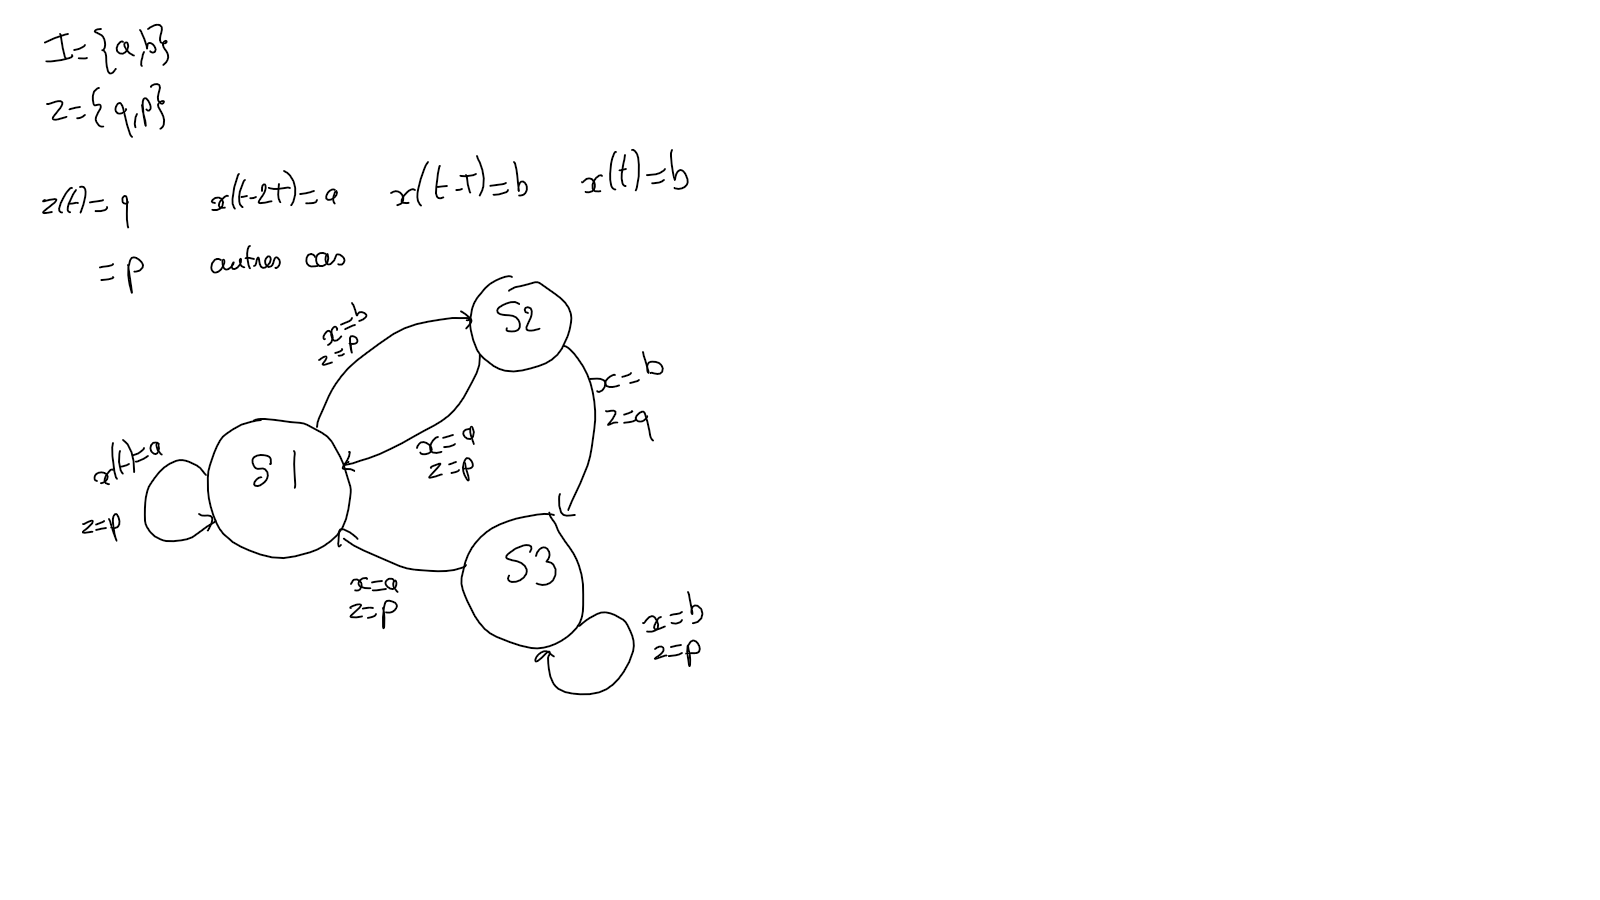 I={a,b}
Z={q,p}
z(t)=q x(t-2T)=a x(t-T)=b x(t)=b
=p autres cas
S2
x=b
z=p
x=b
z=q
x=a
z=p
x(t)=a
z=p
S1
S3
x=a
z=p
x=b
z=p